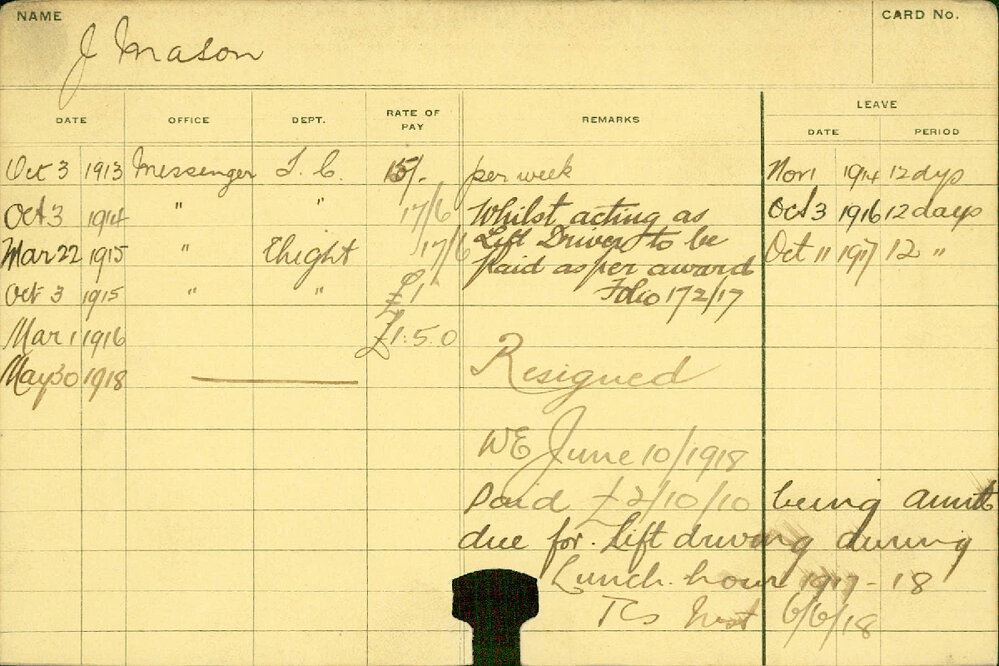 NAME
CARD No.
J Mason
LEAVE
DATE OFFICE DEPT. RATE OF PAY REMARKS DATE PERIOD
Oct 3 1913 Messenger T. C. 15/- per week Nov 1 1914 12 days
Oct 3 1914 " " 17/6 Whilst acting as Oct 3 1916 12 days
Mar 22 1915 " Elight 17/6 Lift Driver to be Oct 11 1917 12 "
paid as per award
Oct 3 1915 " " £1 Folio 172/17
Mar 1 1916 £1.5.0
May 30 1918 Resigned
WE June 10/1918
Paid £2/10/10 being amnt
due for Lift driving during
Lunch hour 1917-18
TCs 6/6/18